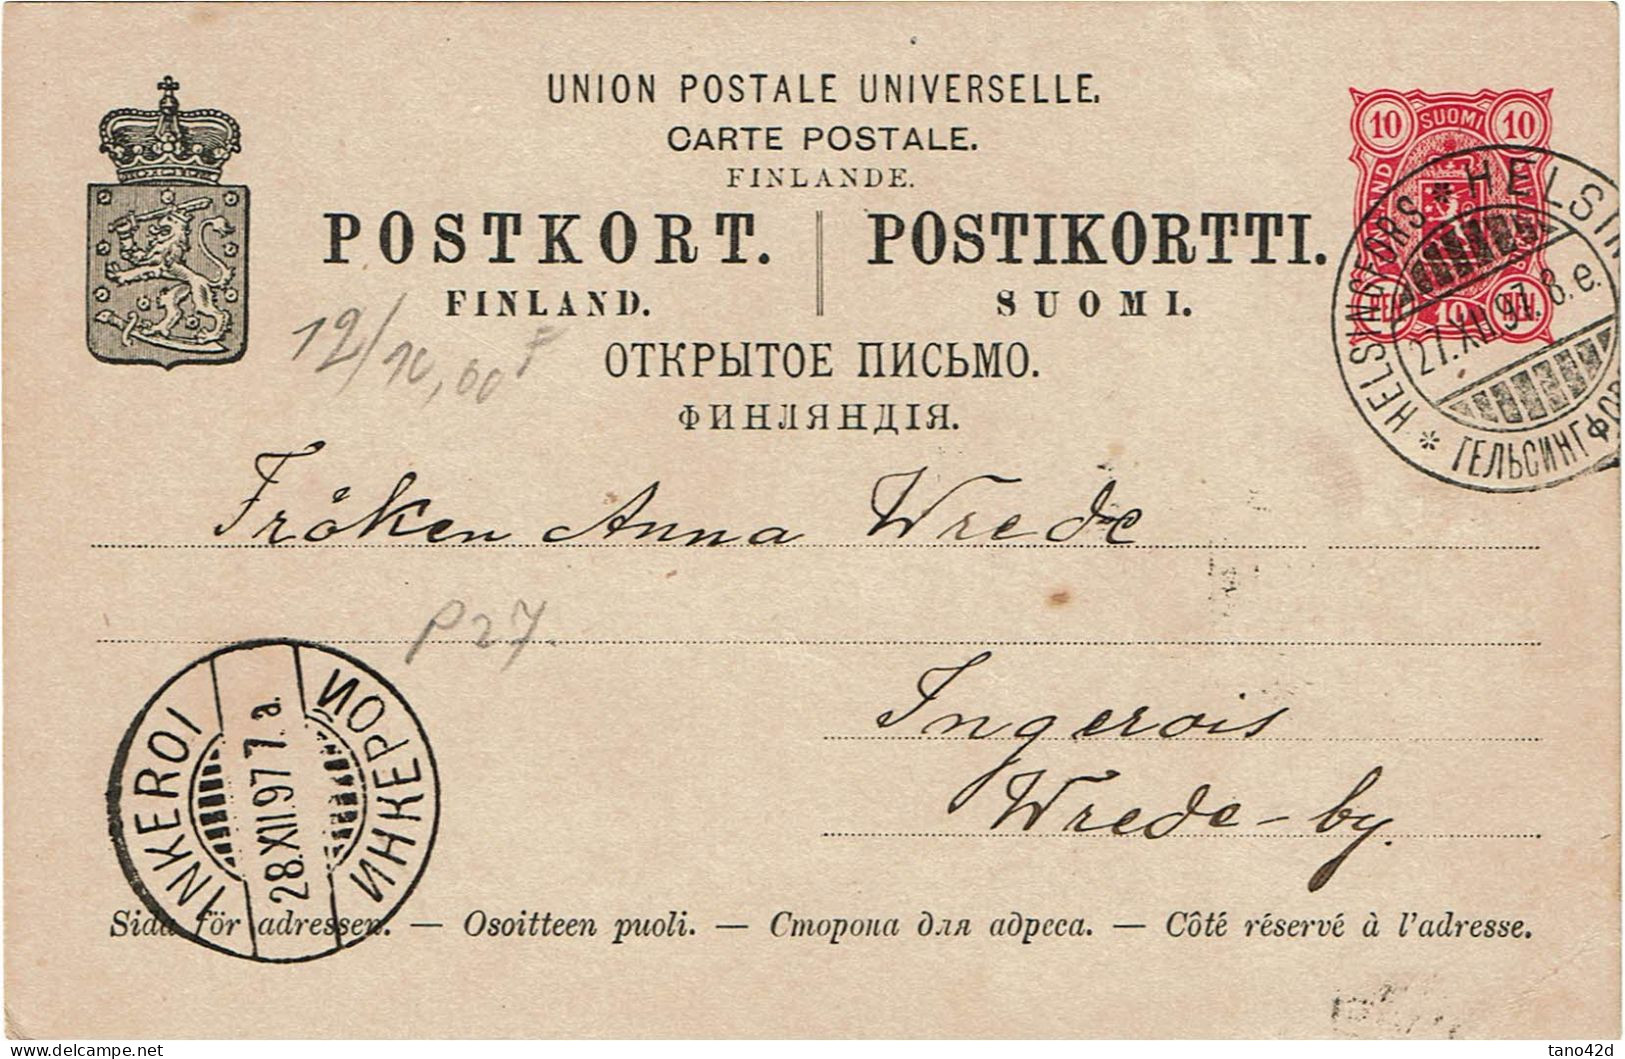 UNION POSTALE UNIVERSELLE.
CARTE POSTALE.
FINLANDE.
POSTKORT. POSTIKORTTI.
FINLAND. SUOMI.
ОТКРЫТОЕ ПИСЬМО.
ФИНЛЯНДІЯ.
10 SUOMI 10
10 PEN
HELSINGFORS * HELSIN
27.XII.97. 8.e.
* ГЕЛЬСИНГФОР
12/10,00 F
Fröken Anna Wrede
P27.
Ingerois
Wrede-by.
INKEROI ИНКЕРОИ
28.XII.97 7.a.
Sida för adressen. — Osoitteen puoli. — Сторона для адреса. — Côté réservé à l'adresse.
delcampe.net
tano42d